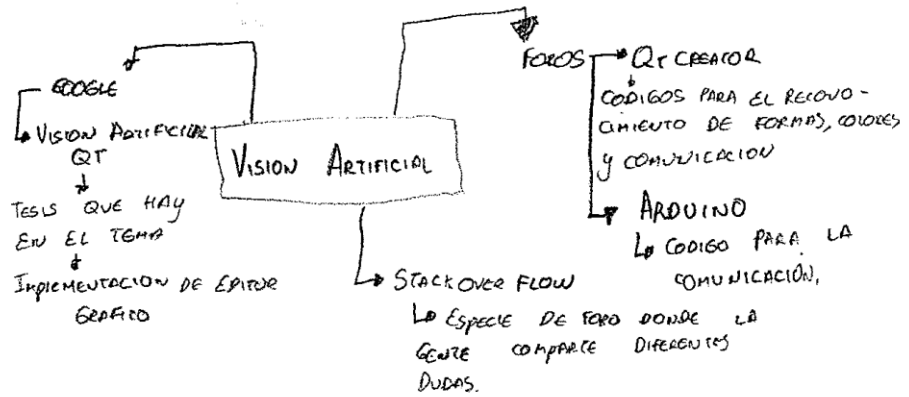 VISION ARTIFICIAL
GOOGLE
VISION ARTIFICIAL
QT
TESIS QUE HAY
EN EL TEMA
IMPLEMENTACION DE EDITOR
GRAFICO
FOROS
QT CREATOR
CODIGOS PARA EL RECONO-
CIMIENTO DE FORMAS, COLORES
Y COMUNICACION
ARDUINO
CODIGO PARA LA
COMUNICACIÓN.
STACK OVER FLOW
ESPECIE DE FORO DONDE LA
GENTE COMPARTE DIFERENTES
DUDAS.